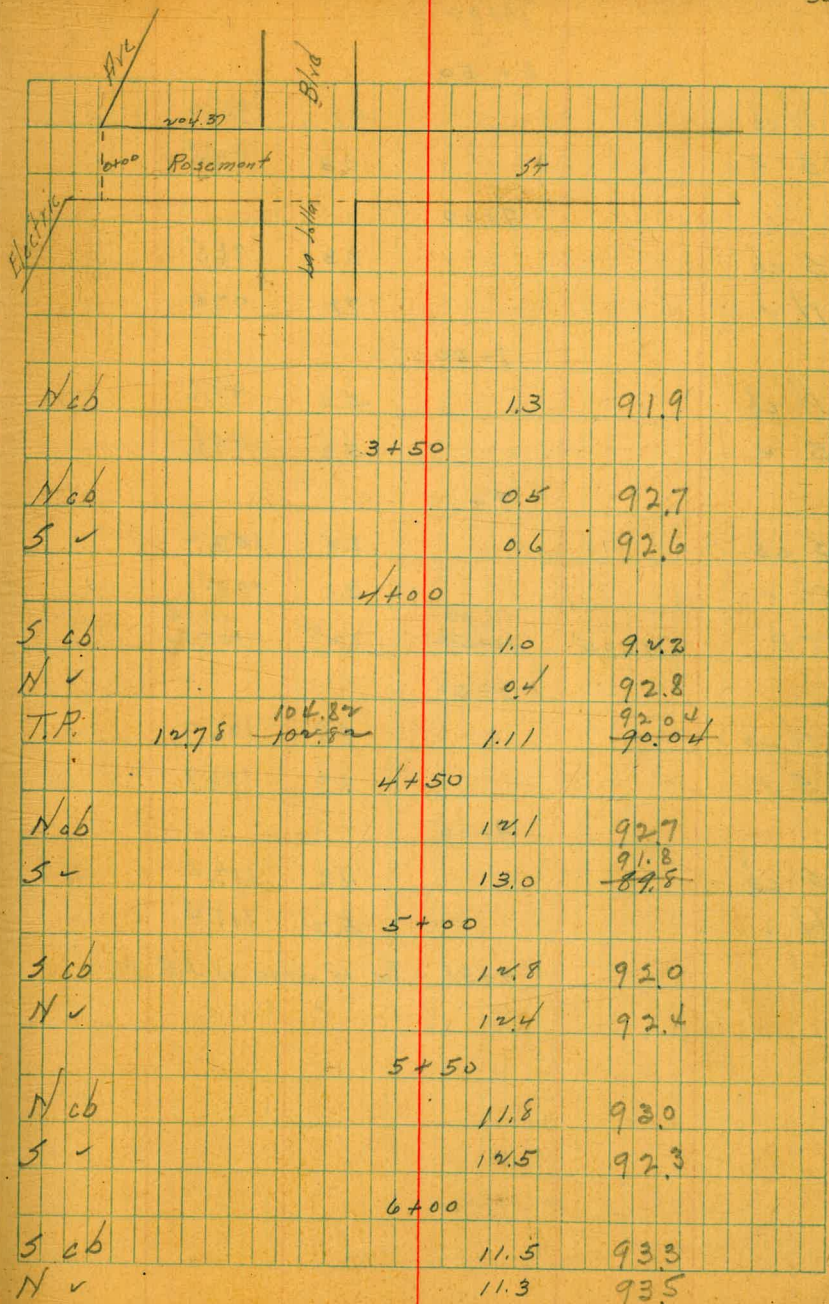 Ave Blvd
204.37
0+00 Rosemont ST
Electric La Jolla
N cb 1.3 91.9
3+50
N cb 0.5 92.7
S ✓ 0.6 92.6
4+00
S cb 1.0 92.2
N ✓ 0.4 92.8
104.82 92.04
T.P. 12.78 102.82 1.11 90.04
4+50
N cb 12.1 92.7
91.8
S ✓ 13.0 89.8
5+00
S cb 12.8 92.0
N ✓ 12.4 92.4
5+50
N cb 11.8 93.0
S ✓ 12.5 92.3
6+00
S cb 11.5 93.3
N ✓ 11.3 93.5